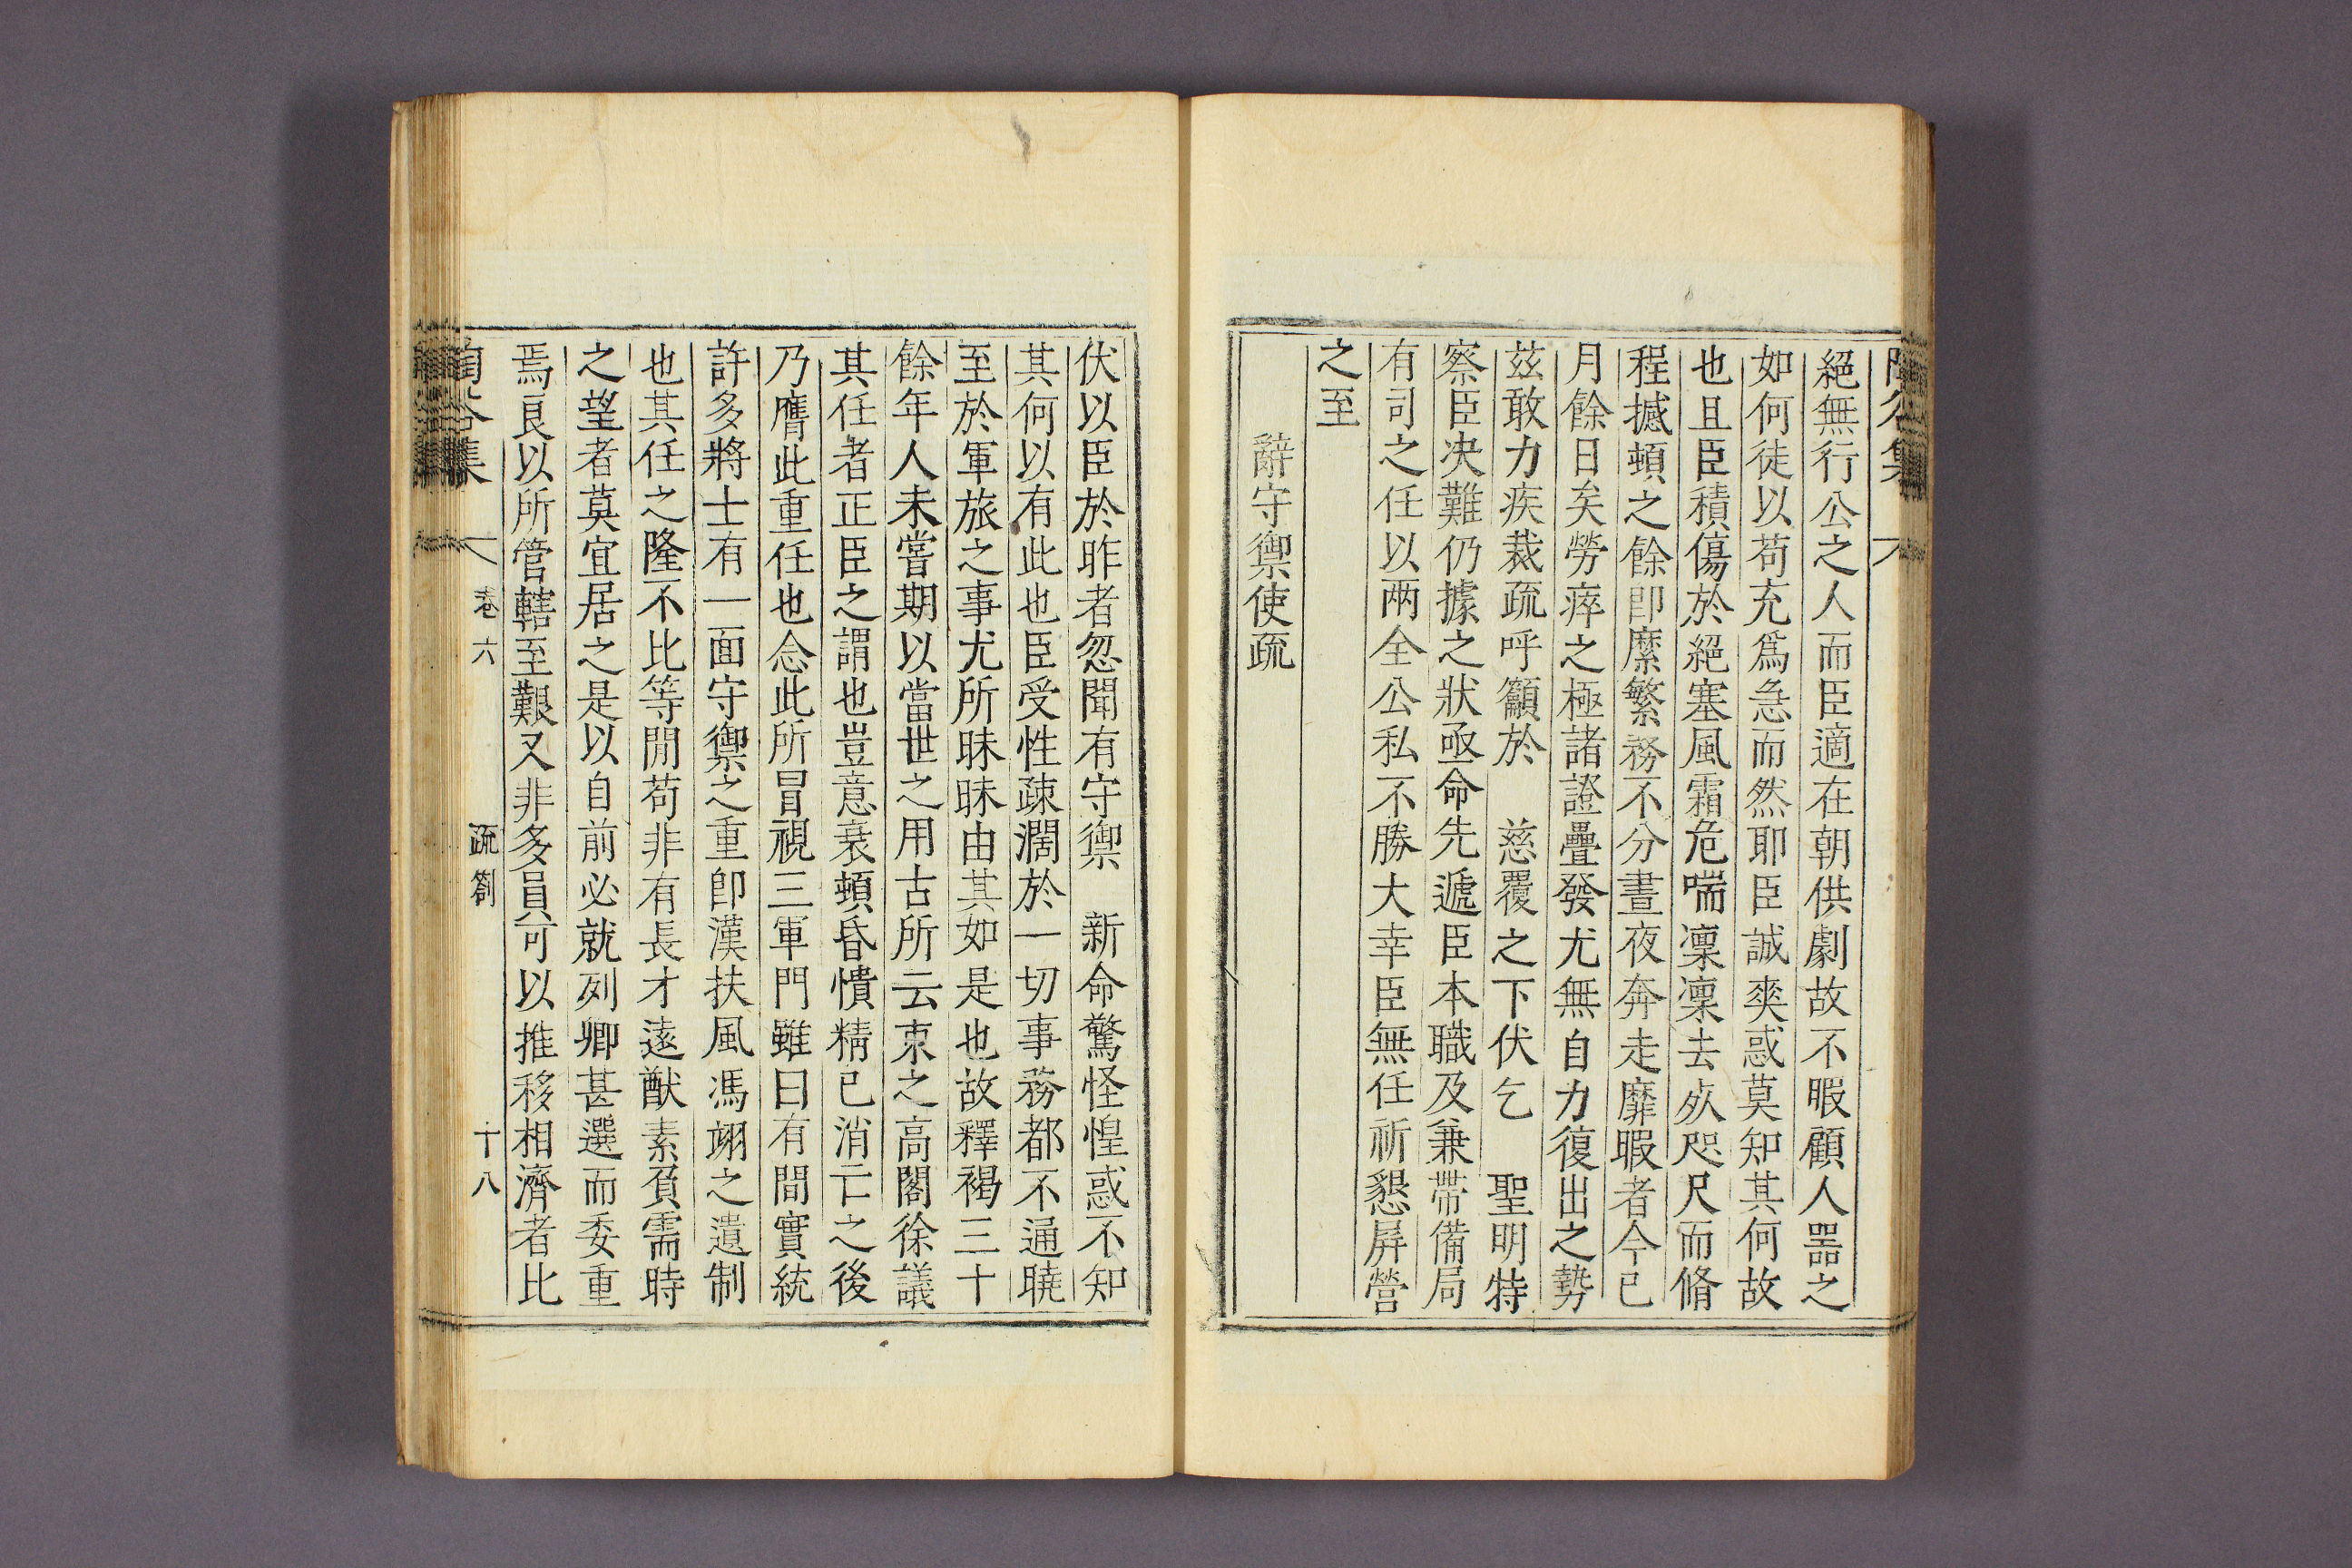 絕無行公之人而臣適在朝供劇故不暇顧人器之
如何徒以苟充爲急而然耶臣誠爽惑莫知其何故
也且臣積傷於絕塞風霜危喘凜凜去死咫尺而脩
程撼頓之餘卽縻繁務不分晝夜奔走靡暇者今已
月餘日矣勞瘁之極諸證疊發尤無自力復出之勢
玆敢力疾裁疏呼籲於 慈覆之下伏乞 聖明特
察臣决難仍據之狀亟命先遞臣本職及兼帶備局
有司之任以兩全公私不勝大幸臣無任祈懇屛營
之至
辭守禦使疏
伏以臣於昨者忽聞有守禦 新命驚怪惶惑不知
其何以有此也臣受性疎濶於一切事務都不通曉
至於軍旅之事尤所昧昧由其如是也故釋褐三十
餘年人未嘗期以當世之用古所云束之高閣徐議
其任者正臣之謂也豈意衰頓昏憒精已消亡之後
乃膺此重任也念此所冒視三軍門雖曰有間實統
許多將士有一面守禦之重卽漢扶風馮翊之遺制
也其任之隆不比等閒苟非有長才遠猷素負需時
之望者莫宜居之是以自前必就列卿甚選而委重
焉良以所管轄至艱又非多員可以推移相濟者比
陶谷集 卷六 疏劄 十八